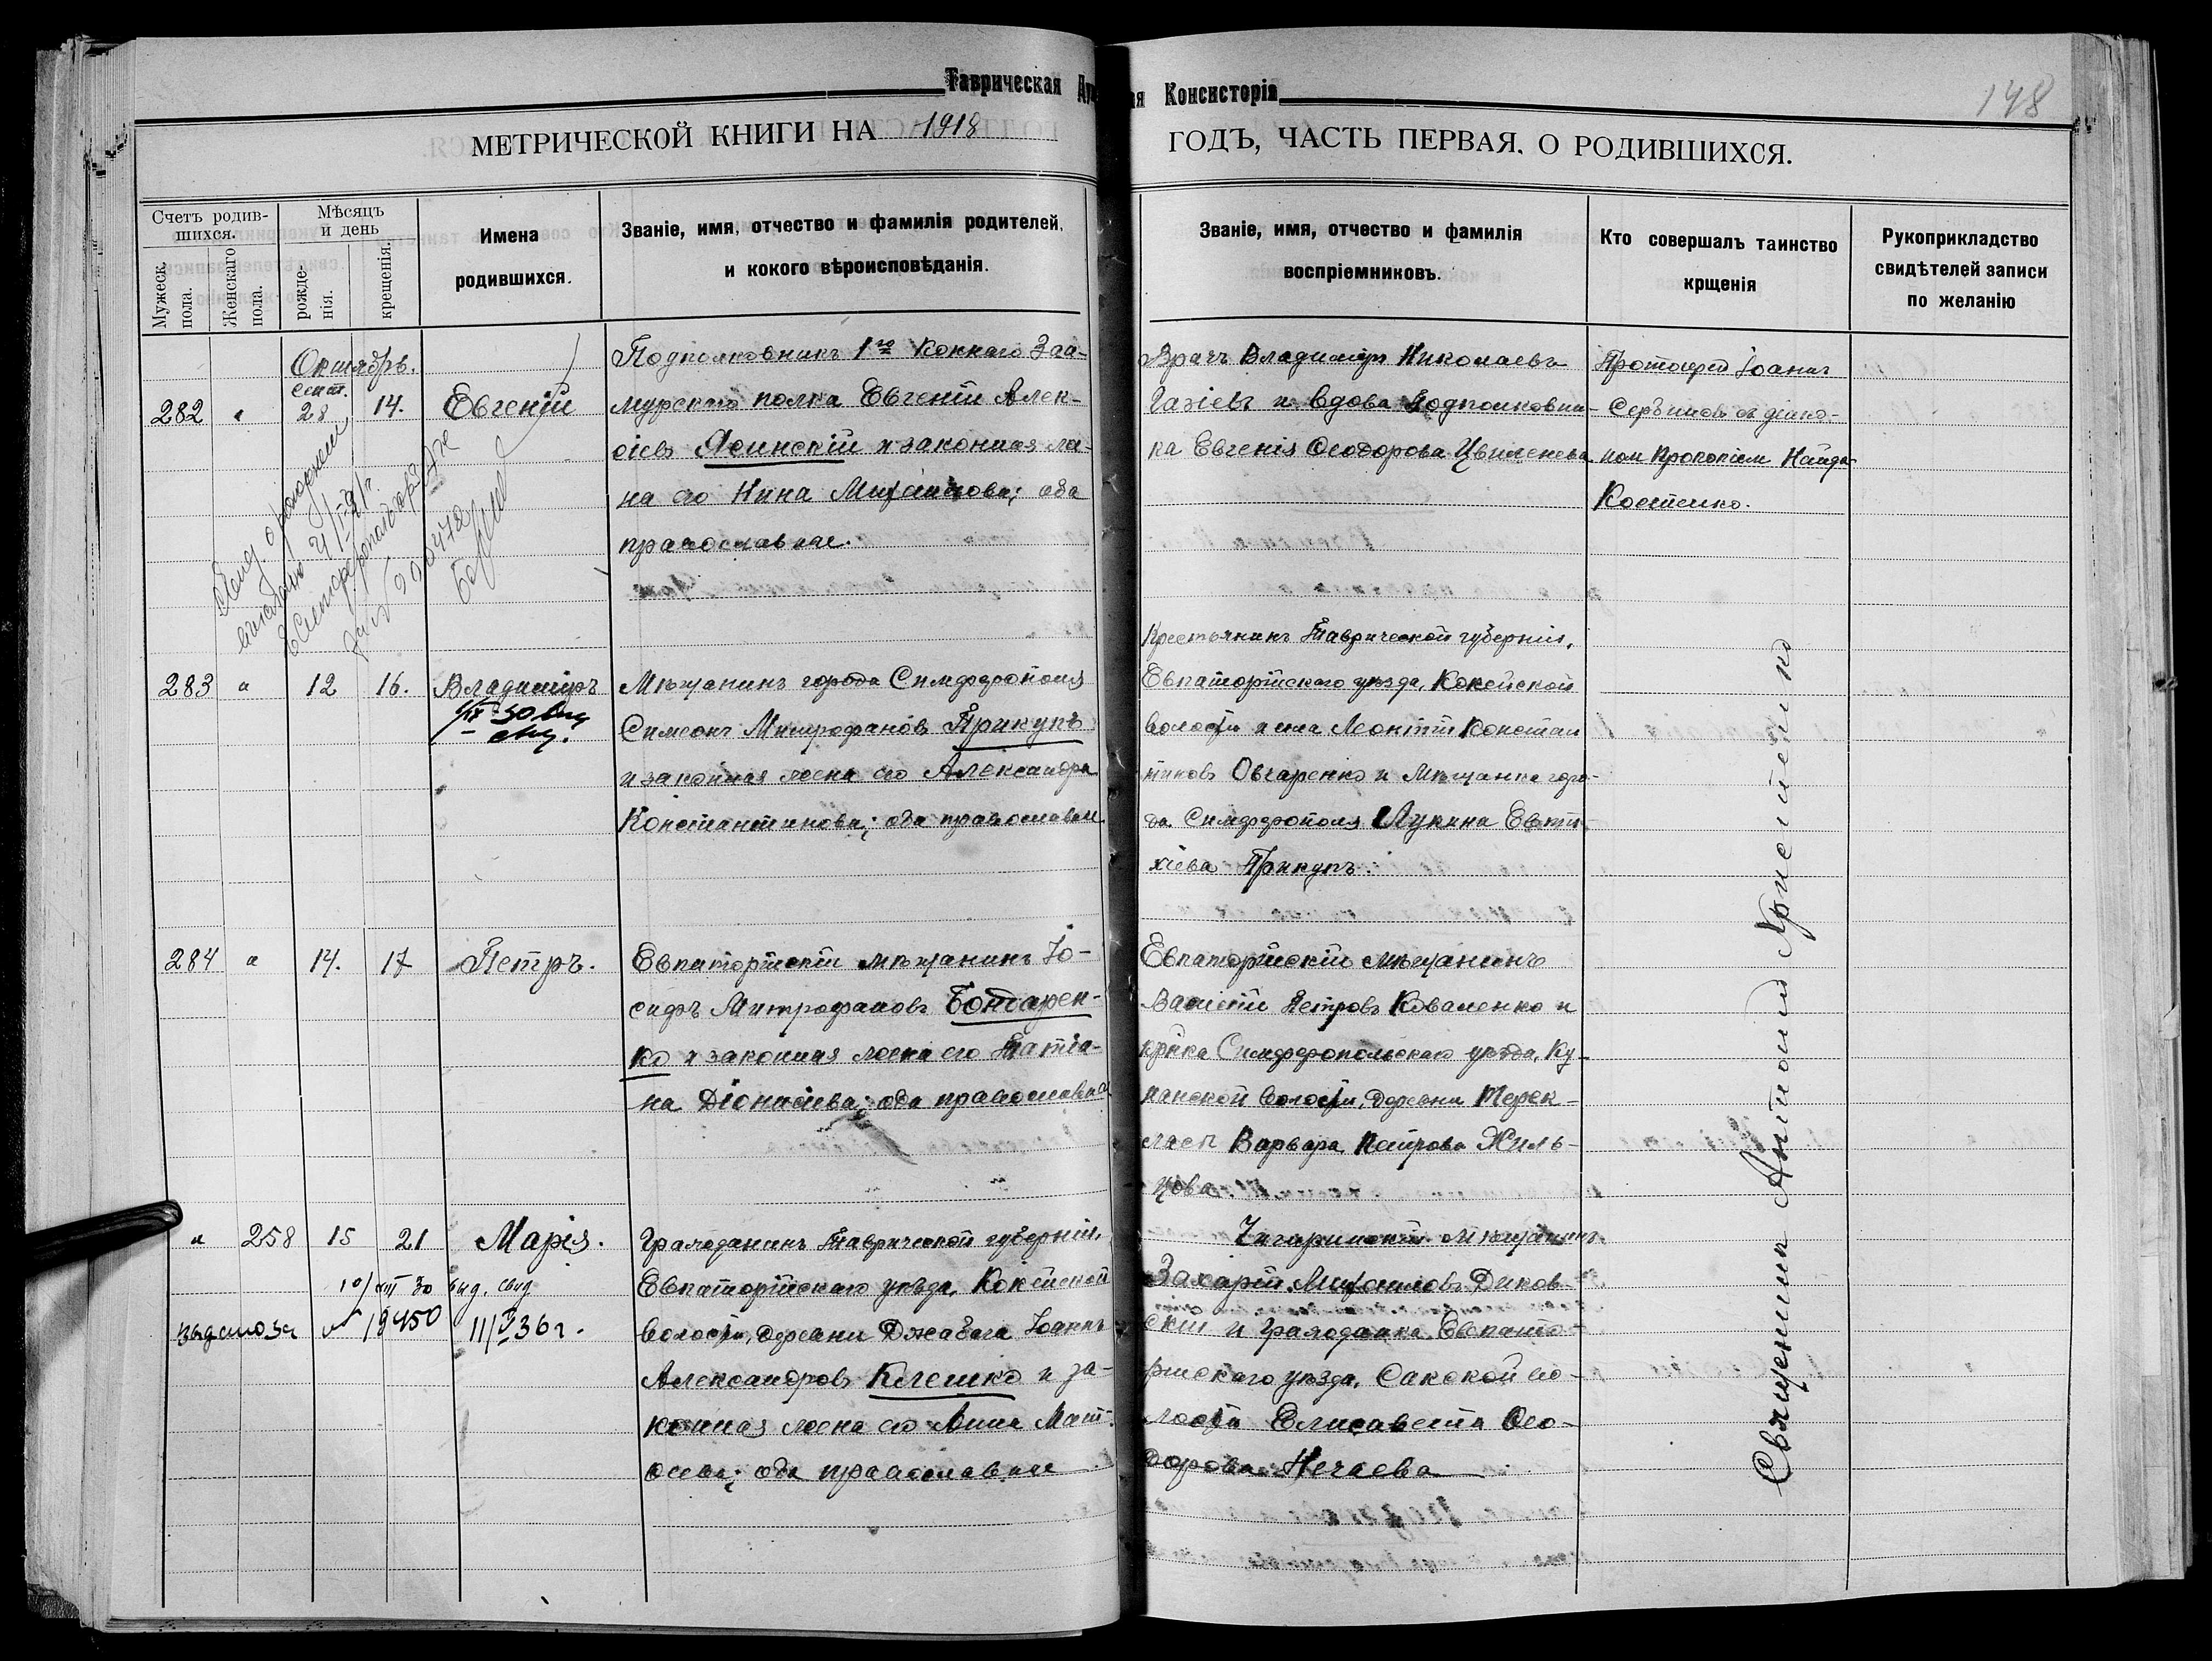 Таврическая Ду
ая Консисторія
148
МЕТРИЧЕСКОЙ КНИГИ НА 1918
ГОДЪ, ЧАСТЬ ПЕРВАЯ. О РОДИВШИХСЯ.
Счетъ родив-
шихся.
Мужеск.
пола.
Женскаго
пола.
Мѣсяцъ
и день
рожде-
нія.
крещенія.
Имена
родившихся.
Званіе, имя, отчество и фамилія родителей,
и кокого вѣроисповѣданія.
Званіе, имя, отчество и фамилія
воспріемниковъ.
Кто совершалъ таинство
крщенія
Рукоприкладство
свидѣтелей записи
по желанію
Октябрь.
Сент.
282 " 28 14. Евгеній
Подполковникъ 1го Коннаго Заа-
мурскаго полка Евгеній Алек-
сіевъ Ясинскій и законная же-
на его Нина Михаилова; оба
православные.
Врачъ Владиміръ Николаевъ
Газіевъ и вдова Подполковни-
ка Евгенія Ѳеодорова Цвиленева
Протоіерей Іоаннъ
Сербиновъ съ діако-
ном Прокопіем Найда-
Костенко.
283 " 12 16. Владиміръ
Мѣщанинъ города Симферополя
Симеонъ Митрофановъ Прикупъ
и законная жена его Александра
Константинова; оба православные
Крестьянинъ Таврической губерніи,
Евпаторійскаго уѣзда, Кокейской
волости и села Леонтій Констан
тиновъ Овчаренко и Мѣщанка горо-
да Симферополя Лукина Евти-
хіева Прикупъ.
284 " 14. 17 Петръ.
Евпаторійскій мѣщанинъ Іо-
сифъ Митрофановъ Бондарен-
ко и законная жена его Татіа-
на Діонисіева; оба православные
Евпаторійскій мѣщанинъ
Василій Петровъ Коваленко и
кр-нка Симферопольскаго уѣзда, Ку-
манской волости, деревни Терек-
лаеп Варвара Петрова Хиль-
цова
" 258 15 21 Марія.
Гражданинъ Таврической губерніи,
Евпаторійскаго уѣзда, Кокейской
волости, деревни Джабага Іоаннъ
Александровъ Клешко и за-
конная жена его Анна Мат-
ѳеева; оба православные
Чигиринскій мѣщанинъ
Захарій Михаиловъ Диков-
скій и гражданка Евпато-
рійскаго уѣзда, Сакской во-
лости Елисавета Ѳео-
дорова Нечаева
10/VIII 30 выд. свид
выдано за № 19450 11/V 36 г.
Священникъ Антоній Христенко